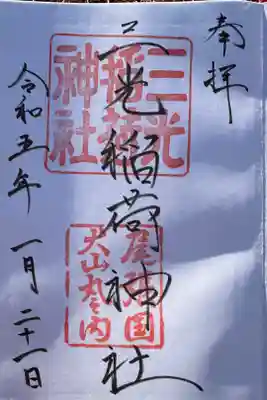 奉拝
三光稲荷神社
令和五年 一月 二十一日
三光
稲荷
神社
尾張国
犬山丸之内